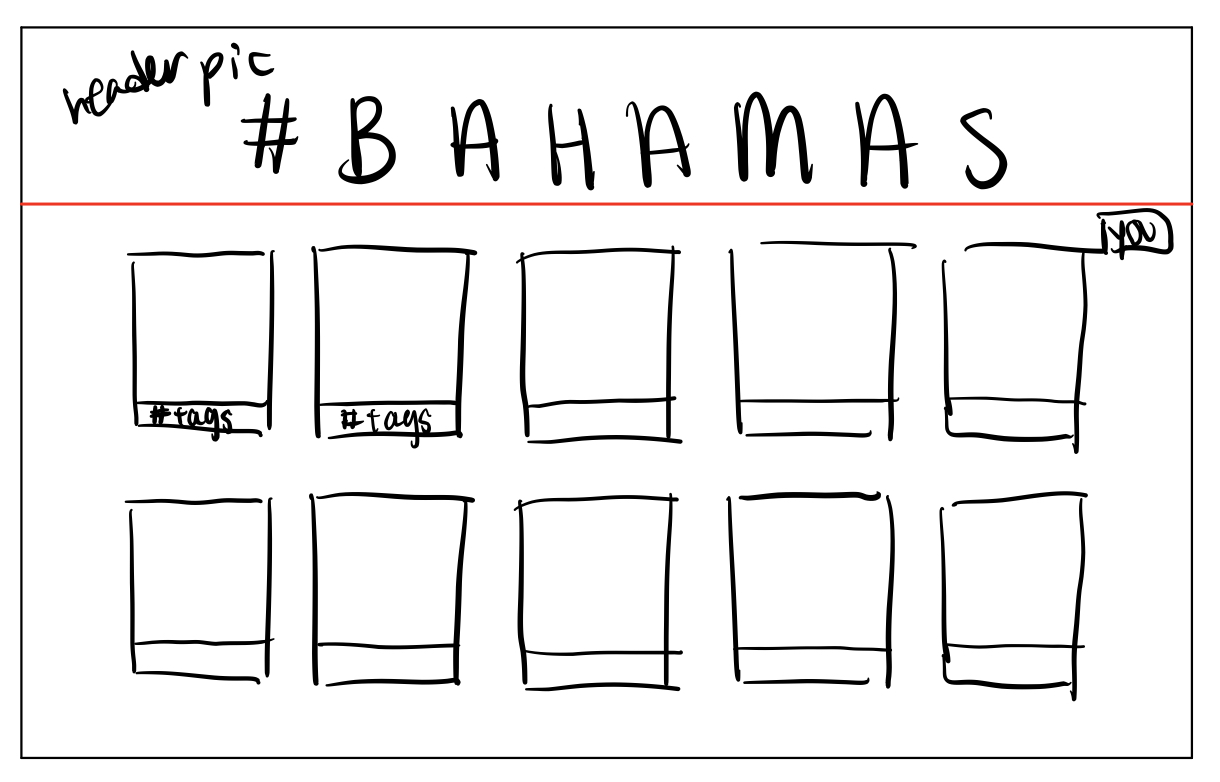 header pic
#BAHAMAS
you
#tags #tags